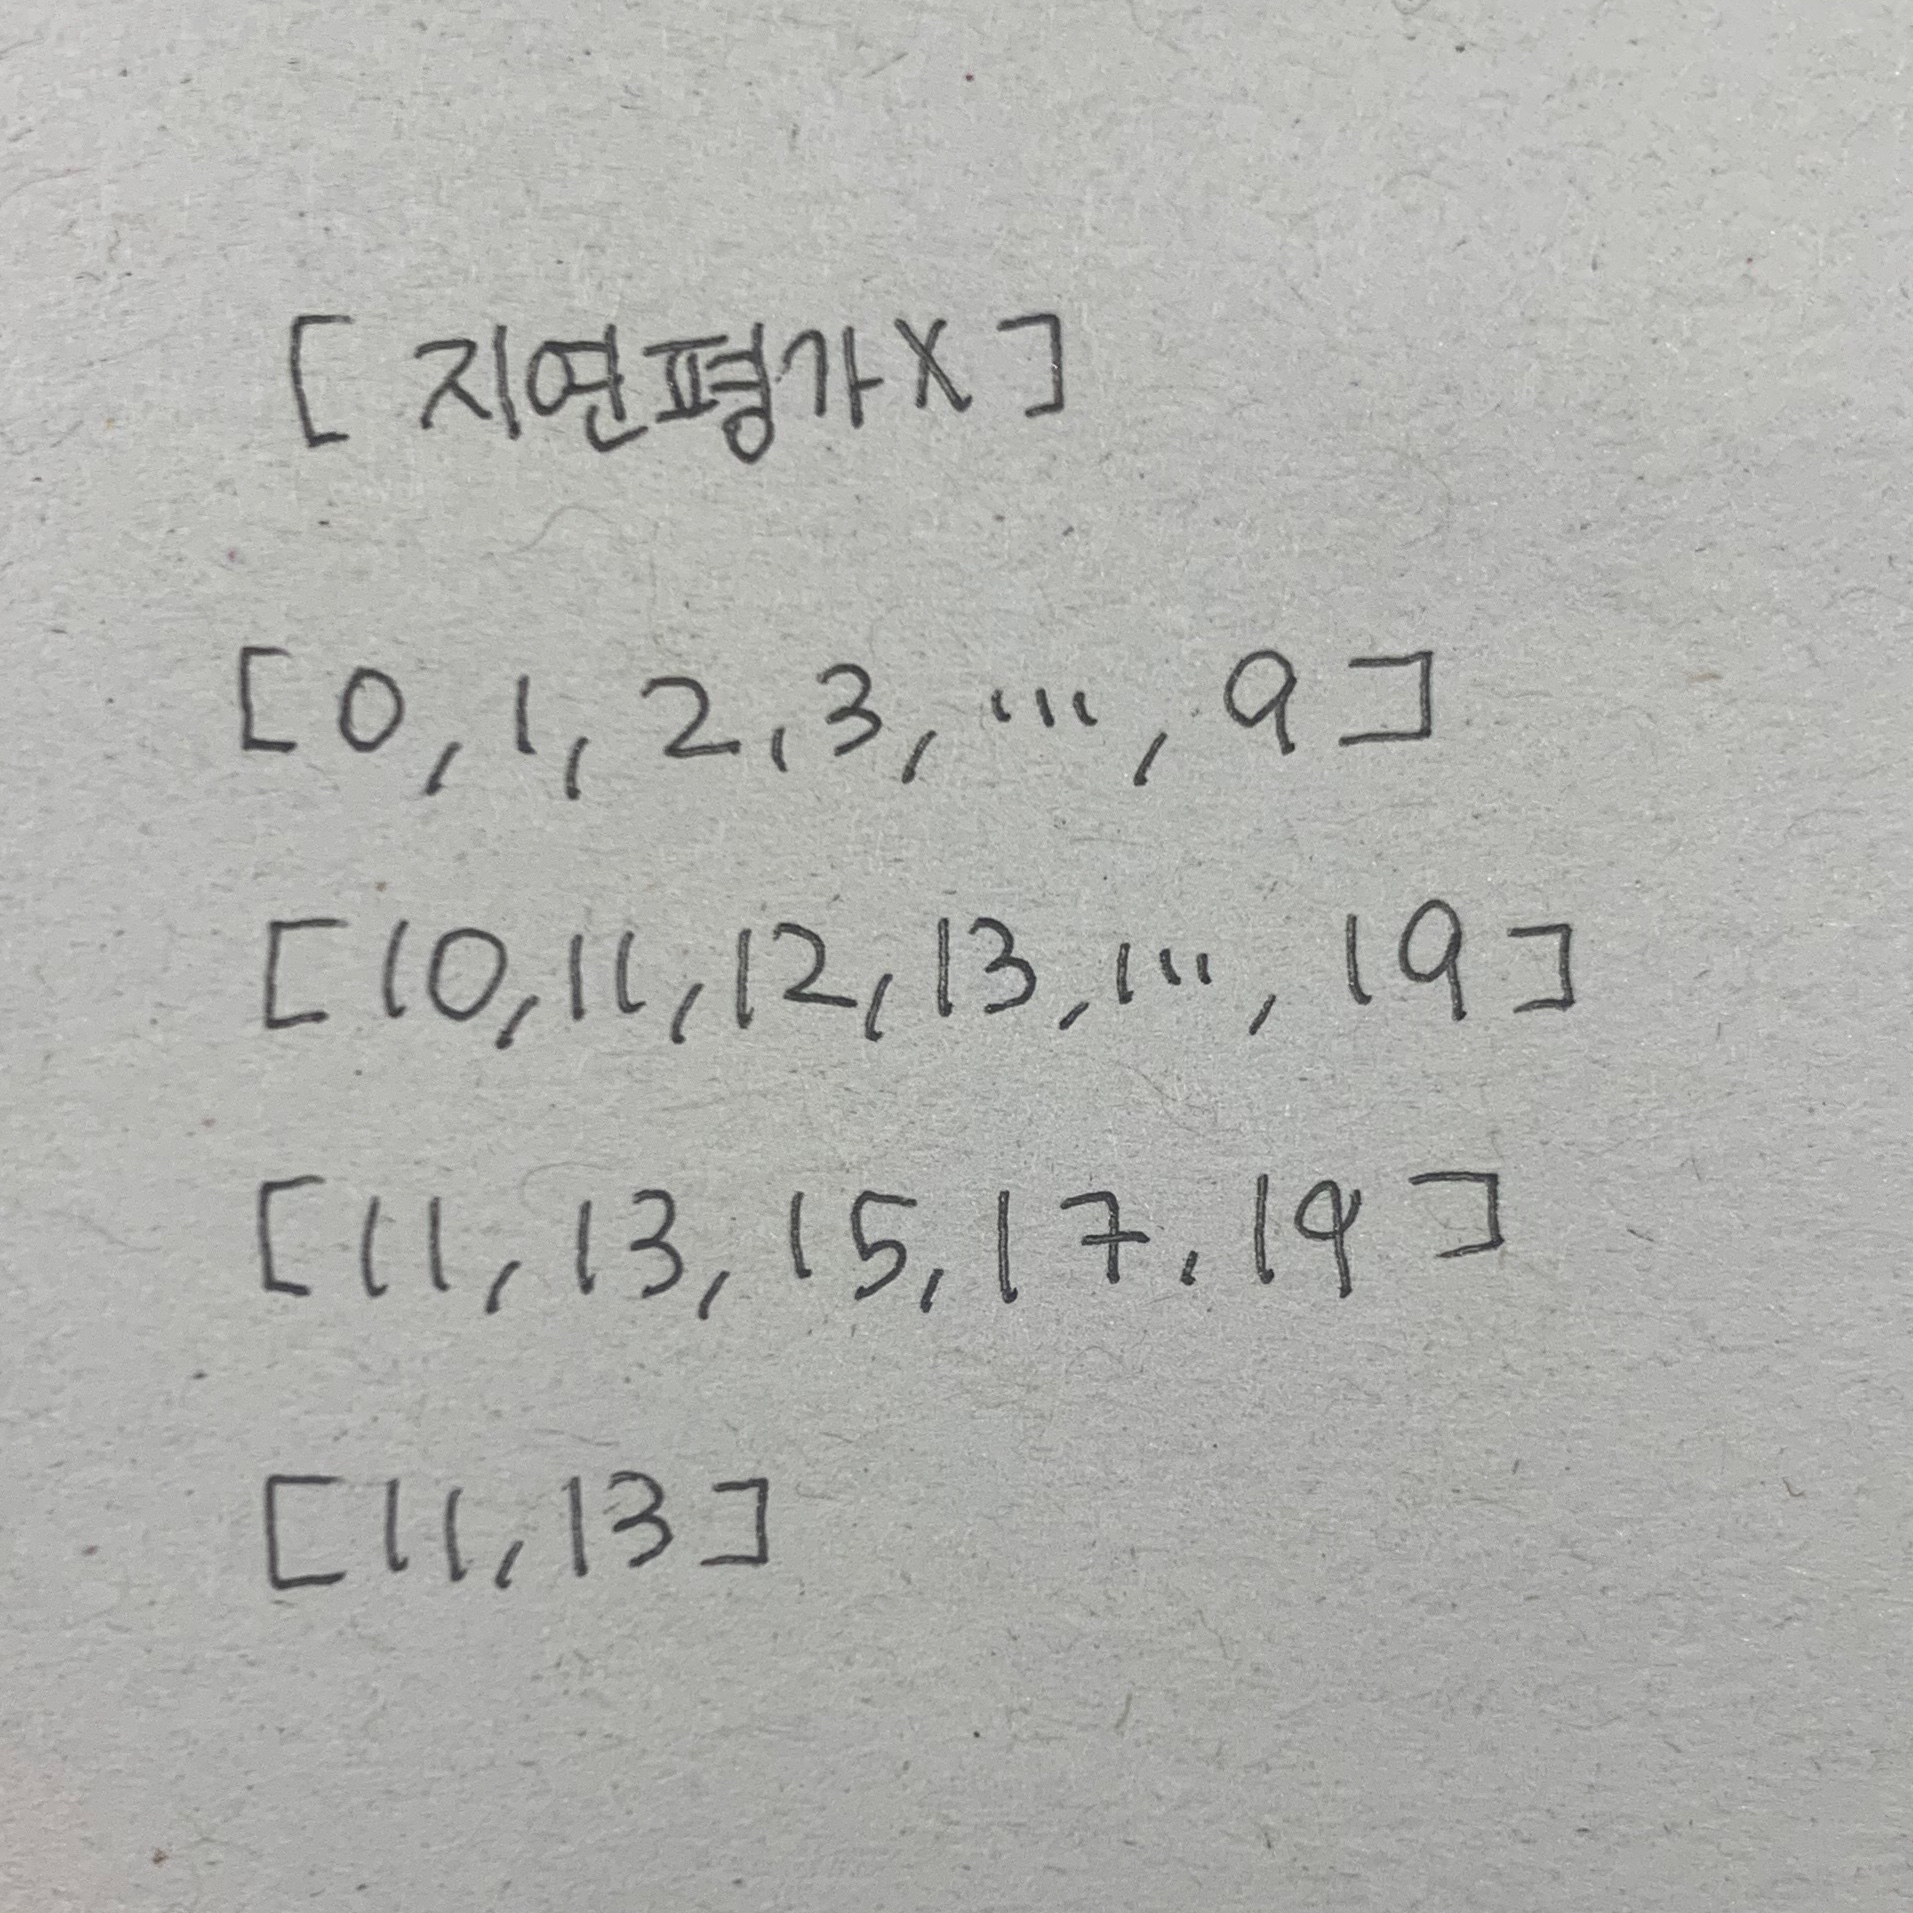 [ 지연평가 X ]
[0, 1, 2, 3, ..., 9]
[10, 11, 12, 13, ..., 19]
[11, 13, 15, 17, 19]
[11, 13]